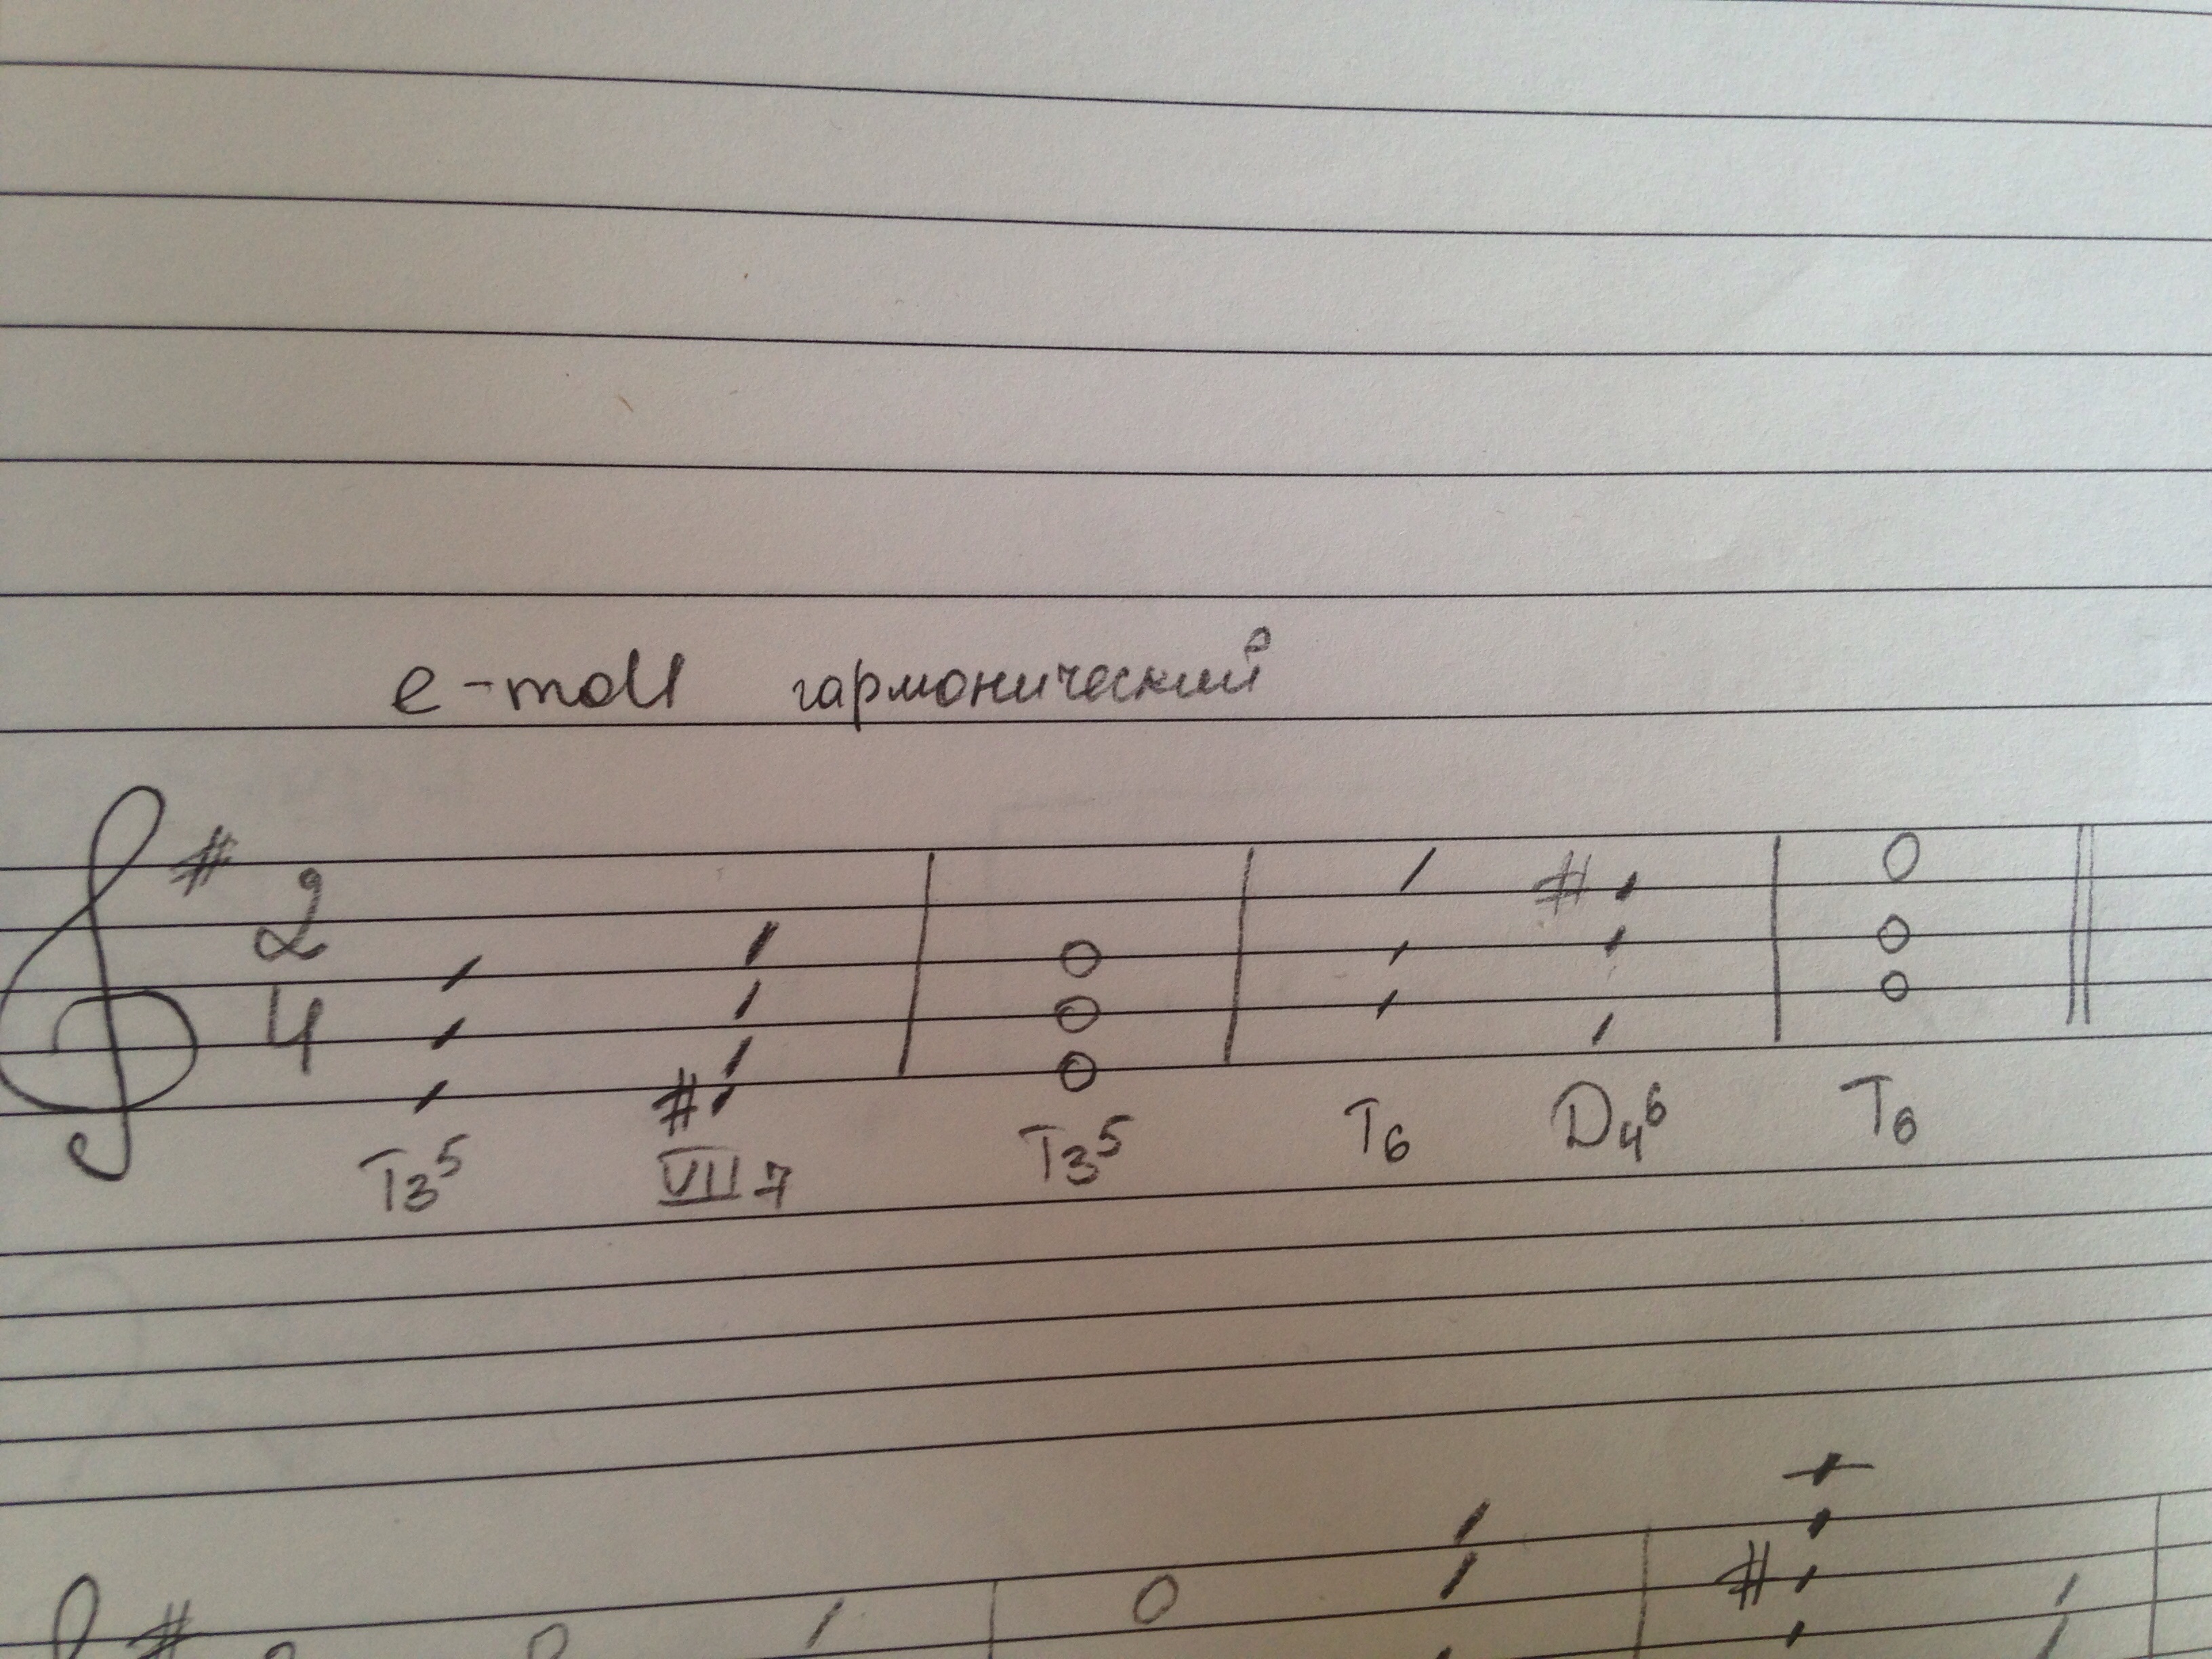 e-moll гармонический
# 2
4 # #
T3 5 VII 7 T3 5 T6 D4 6 T6
# #